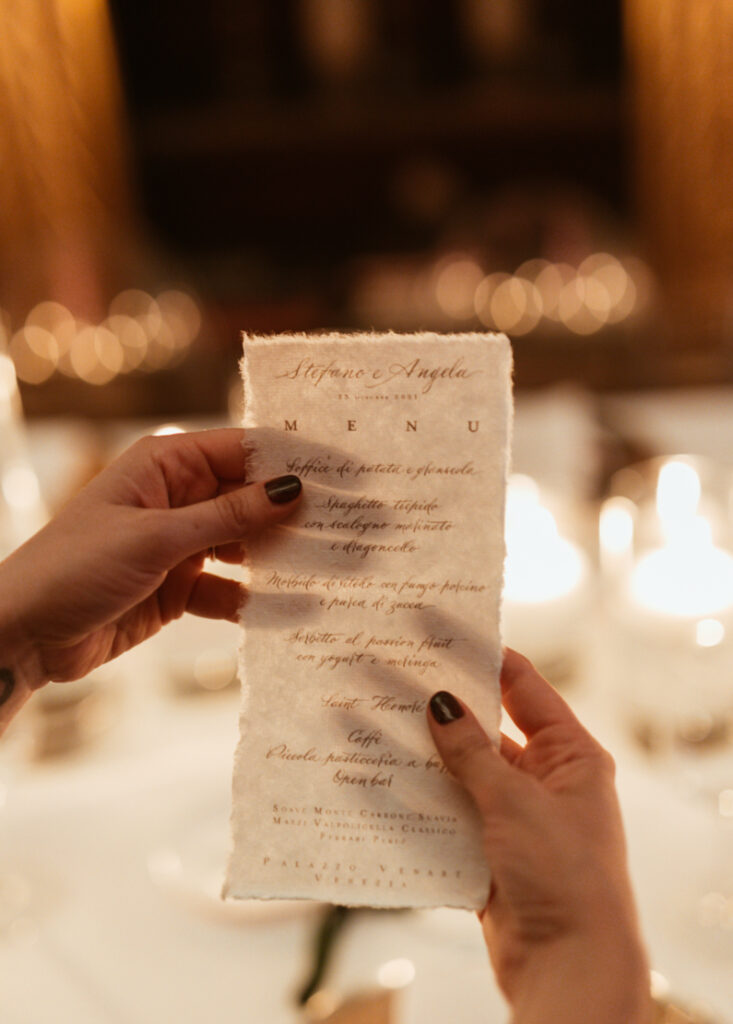 Stefano e Angela
2021
MENU
Soffice di patata e
Spaghetto tiepido
con scalogno marinato
e dragoncello
Morbido di vitello con fungo porcino
e purea di zucca
Sorbetto al passion fruit
con yogurt e meringa
Saint Honoré
Caffè
Piccola pasticceria a
Open bar
SOAVE MONTE CARBONE SUAVIA
MAZZI VALPOLICELLA CLASSICO
FERRARI PERLÉ
PALAZZO VENART
VENEZIA